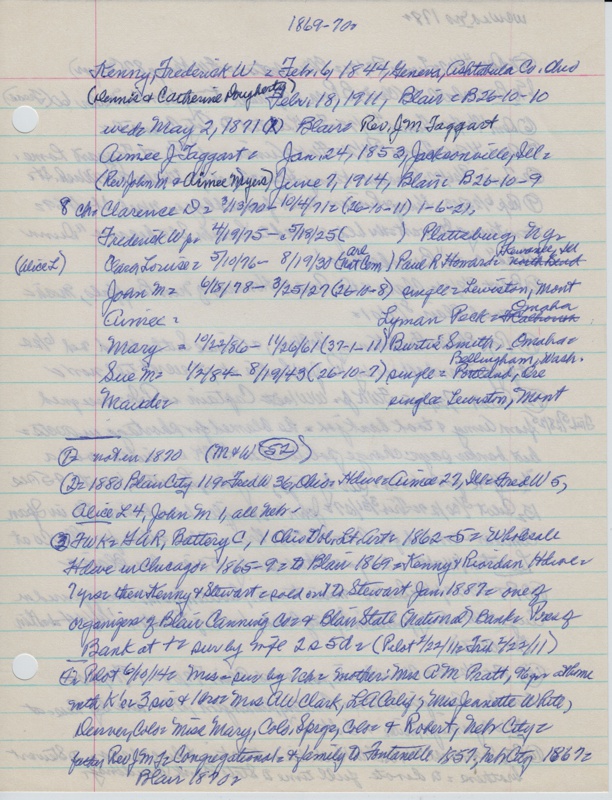 1869-70s
Kenny, Frederick W = Feb. 6, 1844, Geneva, Ashtabula Co. Ohio
(Dennis & Catherine Dougherty) Feb. 18, 1911, Blair = B26-10-10
wed = May 2, 1871 Blair = Rev. J M Taggart
Aimee J Taggart = Jan. 24, 1853, Jacksonville, Ill =
(Rev John M & Aimee Myers) June 7, 1914, Blair = B26-10-9
8 ch = Clarence D = 3/13/70 - 10/4/71 = (26-10-11) 1-6-21,
Frederick W jr = 4/19/75 - 5/19/25 ( ) Plattsburg, N.Y.
(Alice L) Carol Louise = 5/10/76 - 8/19/30 Paul R Howard = Kewanee, Ill
John M = 6/18/78 - 3/25/27 (26-10-8) single = Lewiston, Mont
Aimee = Lyman Peck = Omaha
Mary = 10/22/86 - 1/26/61 (37-1-11) Burt = Smith, Omaha =
Bellingham, Wash.
Sue M = 1/2/84 - 8/19/43 (26-10-7) single = Portland, Ore
Maude = single = Lewiston, Mont
① not in 1870 (M & W 52)
② = 1880 Blair City 119 = Fred W 36, Ohio = Hdwe = Aimee 27, Ill = Fred W 5,
Alice L 4, John M 1, all Neb -
③ FWK = GAR, Battery C, 1 Ohio Vol. Lt. Art = 1862-5 = Wholesale
Hdwe in Chicago = 1865-9 = to Blair 1869 = Kenny & Riordan Hdwe =
7 yrs = then Kenny & Stewart = sold out to Stewart Jan. 1887 = one of
organizers of Blair Canning Co = & Blair State (National) Bank = Pres of
Bank at † = surv by wife 2 s 5 d = (Pilot 2/22/11 = Trib 2/22/11)
Pilot 6/10/14 = Mrs = surv by 7 ch = mother: Mrs A M Pratt, at home
with K's = 3 sis & 1 bro = Mrs A W Clark, LA Calif; Mrs Jennette White,
Denver, Colo = Miss Mary, Colo. Sprgs, Colo = & Robert, Nebr City =
father Rev J M T = Congregational = & family to Fontanelle 1857, Neb City 1867 =
Blair 1870 =